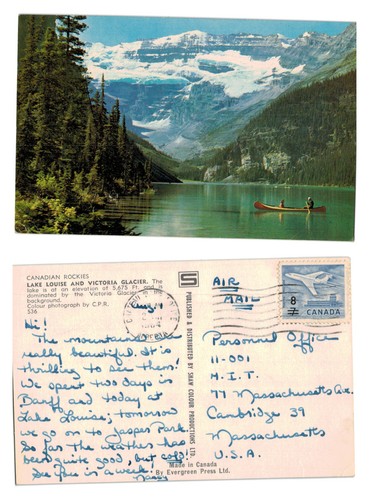 CANADIAN ROCKIES
LAKE LOUISE AND VICTORIA GLACIER. The
lake is at an elevation of 5,675 Ft. and is
dominated by the Victoria Glacier in the
background.
Colour photograph by C.P.R.
536
Aug 14
Hi!
The mountains are
really beautiful. It is
thrilling to see them!
We spent two days in
Banff and today at
Lake Louise; tomorrow
we go on to Jasper Park.
So far the weather has
been quite good, but cold!
See you in a week!
Nancy
S
PUBLISHED & DISTRIBUTED BY SHAW COLOUR PRODUCTIONS LTD.
Made in Canada
By Evergreen Press Ltd.
AIR
MAIL
8
7
CANADA
Personnel Office
11-001
M.I.T.
77 Massachusetts Ave.
Cambridge 39
Massachusetts
U.S.A.